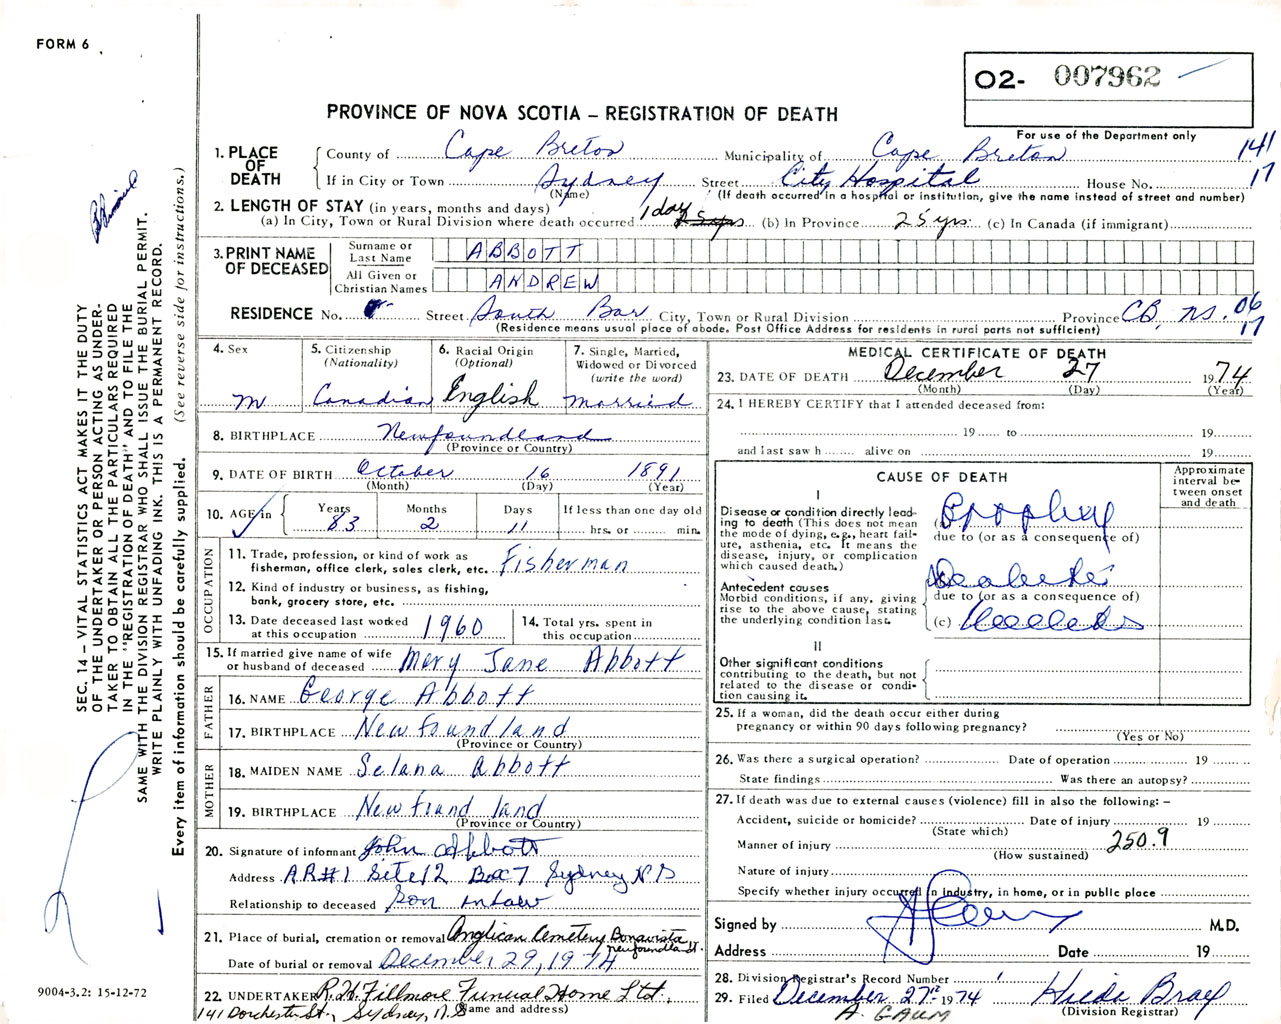 FORM 6
O2- 007962
For use of the Department only
PROVINCE OF NOVA SCOTIA – REGISTRATION OF DEATH
141
17
1. PLACE OF DEATH
County of Cape Breton Municipality of Cape Breton
If in City or Town Sydney Street City Hospital House No.
(Name) (If death occurred in a hospital or institution, give the name instead of street and number)
2. LENGTH OF STAY (in years, months and days)
(a) In City, Town or Rural Division where death occurred 1 day (b) In Province 25 yrs. (c) In Canada (if immigrant)
3. PRINT NAME OF DECEASED
Surname or Last Name ABBOTT
All Given or Christian Names ANDREW
RESIDENCE No. Street South Bar City, Town or Rural Division Province CB, NS. 06
17
(Residence means usual place of abode. Post Office Address for residents in rural parts not sufficient)
4. Sex
M
5. Citizenship
(Nationality)
Canadian
6. Racial Origin
(Optional)
English
7. Single, Married,
Widowed or Divorced
(write the word)
Married
8. BIRTHPLACE Newfoundland
(Province or Country)
9. DATE OF BIRTH October 16 1891
(Month) (Day) (Year)
10. AGE in
Years Months Days If less than one day old
83 2 11 hrs. or min.
OCCUPATION
11. Trade, profession, or kind of work as
fisherman, office clerk, sales clerk, etc. Fisherman
12. Kind of industry or business, as fishing,
bank, grocery store, etc.
13. Date deceased last worked
at this occupation 1960
14. Total yrs. spent in
this occupation
15. If married give name of wife
or husband of deceased Mary Jane Abbott
FATHER
16. NAME George Abbott
17. BIRTHPLACE Newfoundland
(Province or Country)
MOTHER
18. MAIDEN NAME Selana Abbott
19. BIRTHPLACE Newfoundland
(Province or Country)
20. Signature of informant John Abbott
Address RR#1 Site 12 Box 7 Sydney NS
Relationship to deceased Son in Law
21. Place of burial, cremation or removal Anglican Cemetery Bonavista
Newfoundland.
Date of burial or removal December 29, 1974
22. UNDERTAKER R.W. Fillmore Funeral Home Ltd.,
(Name and address)
141 Dorchester St., Sydney, N.S
MEDICAL CERTIFICATE OF DEATH
23. DATE OF DEATH December 27 1974
(Month) (Day) (Year)
24. I HEREBY CERTIFY that I attended deceased from:
19 to 19
and last saw h alive on 19
CAUSE OF DEATH
Approximate interval between onset and death
I
Disease or condition directly lead-
ing to death (This does not mean
the mode of dying, e.g., heart fail-
ure, asthenia, etc. It means the
disease, injury, or complication
which caused death.)
(a)
due to (or as a consequence of)
Antecedent causes
Morbid conditions, if any, giving
rise to the above cause, stating
the underlying condition last.
(b)
due to (or as a consequence of)
(c)
II
Other significant conditions
contributing to the death, but not
related to the disease or condi-
tion causing it.
25. If a woman, did the death occur either during
pregnancy or within 90 days following pregnancy?
(Yes or No)
26. Was there a surgical operation? Date of operation 19
State findings Was there an autopsy?
27. If death was due to external causes (violence) fill in also the following: –
Accident, suicide or homicide? Date of injury 19
(State which)
Manner of injury 250.9
(How sustained)
Nature of injury
Specify whether injury occurred in industry, in home, or in public place
Signed by M.D.
Address Date 19
28. Division Registrar's Record Number
29. Filed December 27th 1974 Hilda Bray
(Division Registrar)
A. GAUM
SEC. 14 – VITAL STATISTICS ACT MAKES IT THE DUTY
OF THE UNDERTAKER OR PERSON ACTING AS UNDER-
TAKER TO OBTAIN ALL THE PARTICULARS REQUIRED
IN THE "REGISTRATION OF DEATH" AND TO FILE THE
SAME WITH THE DIVISION REGISTRAR WHO SHALL ISSUE THE BURIAL PERMIT.
WRITE PLAINLY WITH UNFADING INK. THIS IS A PERMANENT RECORD.
Every item of information should be carefully supplied. (See reverse side for instructions.)
9004-3.2: 15-12-72